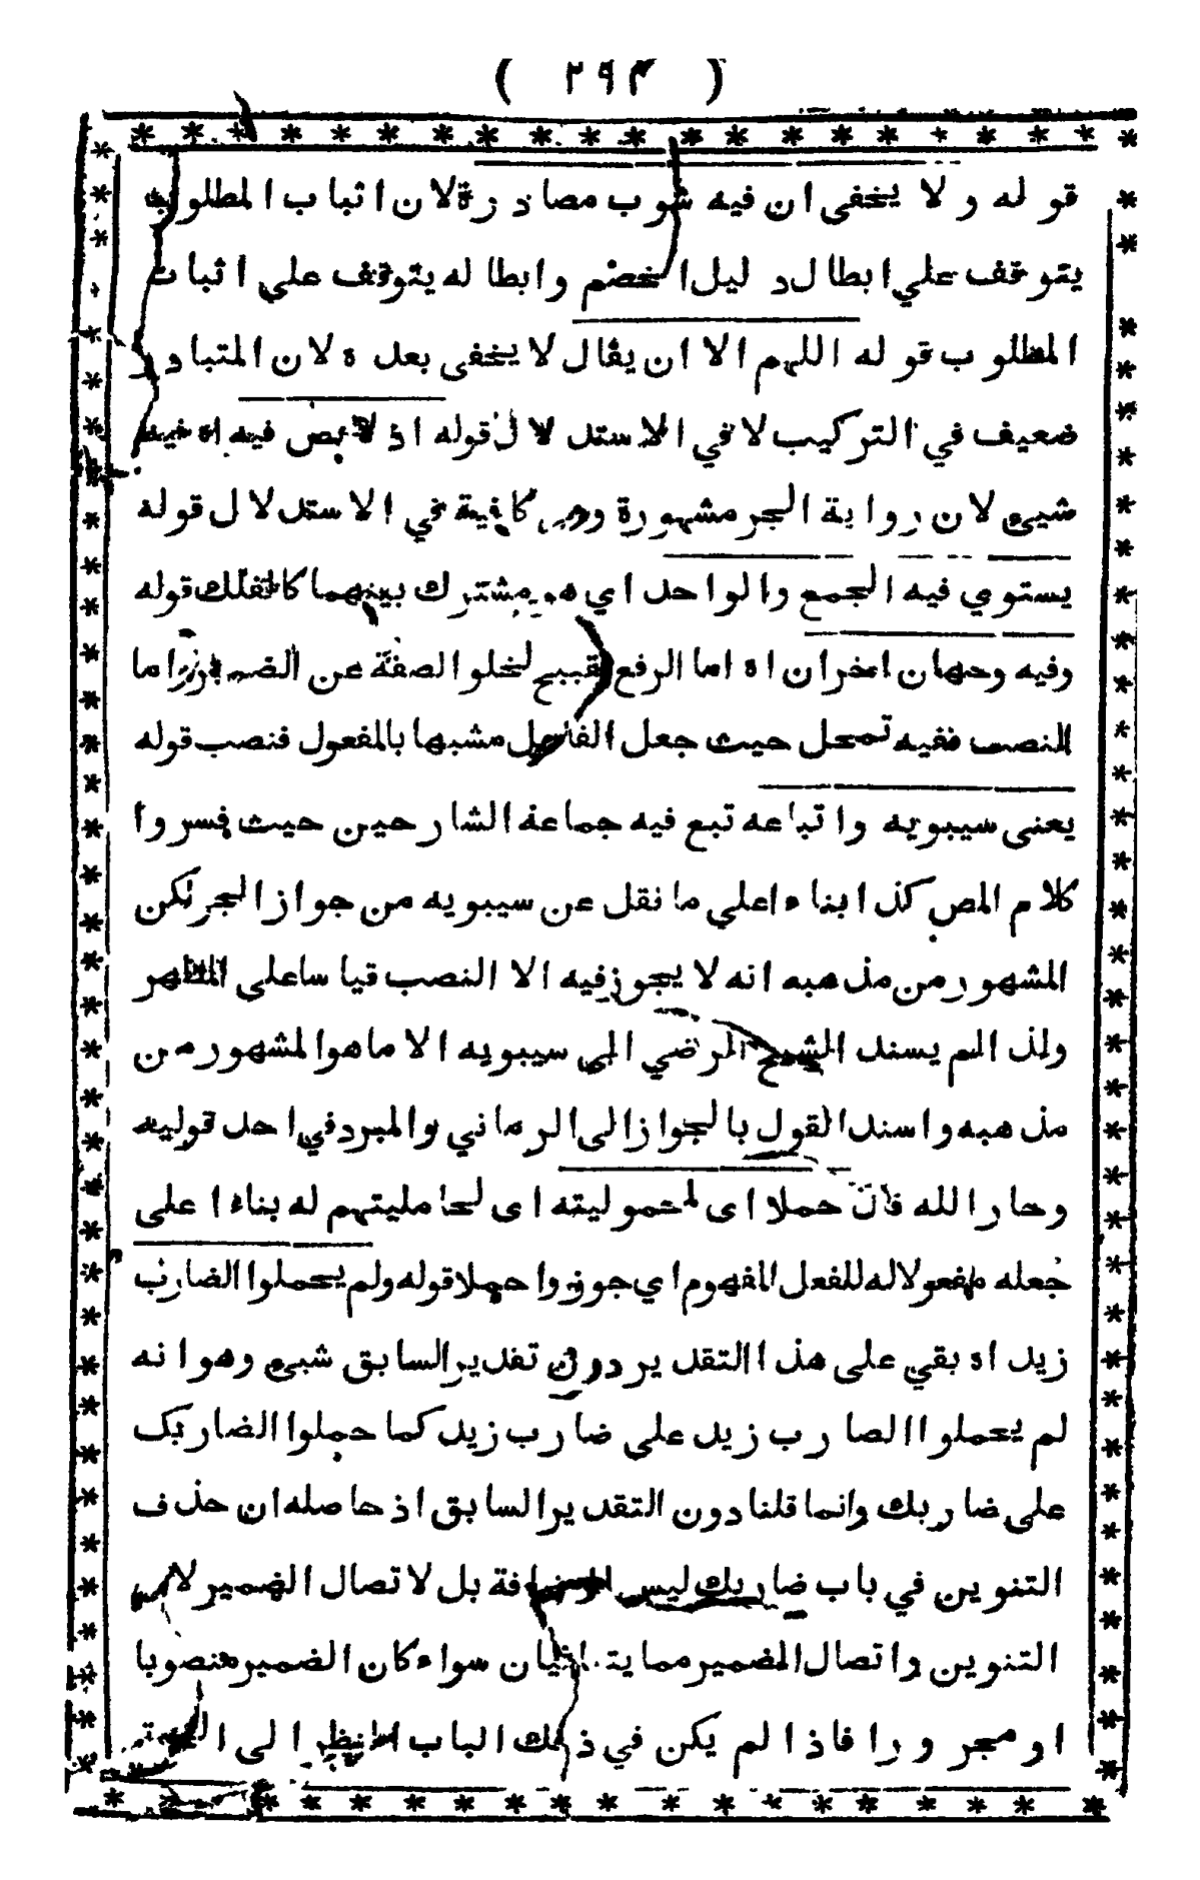 ( ٢٩٣ )
قوله ولا يخفى ان فيه شوب مصادرة لان اثبات المطلوب
يتوقف علي ابطال دليل الخصم وابطاله يتوقف علي اثبات
المطلوب قوله اللهم الا ان يقال لا يخفى بعده لان المتبادر
ضعيف في التركيب لا في الاستدلال قوله اذ لا نص فيه اه فيه
شيئ لان رواية الجر مشهورة وهي كافية في الاستدلال قوله
يستوي فيه الجمع والواحد اي هو مشترك بينهما كالفلك قوله
وفيه وجهان اخران اه اما الرفع فقبيح لخلو الصفة عن الضمير واما
النصب ففيه تمحل حيث جعل الفاعل مشبها بالمفعول فنصب قوله
يعنى سيبويه واتباعه تبع فيه جماعة الشارحين حيث فسروا
كلام المص كذا بناء اعلي ما نقل عن سيبويه من جواز الجر لكن
المشهور من مذهبه انه لا يجوز فيه الا النصب قياسا على المظهر
ولذا لم يسند الشيخ الرضي الى سيبويه الا ما هو المشهور من
مذهبه واسند القول بالجواز الى الرماني والمبرد في احد قوليه
وجار الله فان حملا اى لمحموليته اى لحامليتهم له بناء ا على
جعله مفعولا له للفعل المفهوم اي جوزوا حملا قوله ولم يحملوا الضارب
زيد اه بقي على هذا التقدير دون تقدير السابق شيئ وهو انه
لم يحملوا الضارب زيد علي ضارب زيد كما حملوا الضاربك
على ضاربك وانما قلنا دون التقدير السابق اذ حاصله ان حذف
التنوين في باب ضاربك ليس للاضافة بل لاتصال الضمير لان
التنوين واتصال الضمير مما يتنافيان سواء كان الضمير منصوبا
او مجرورا فاذا لم يكن في ذلك الباب النظر الى